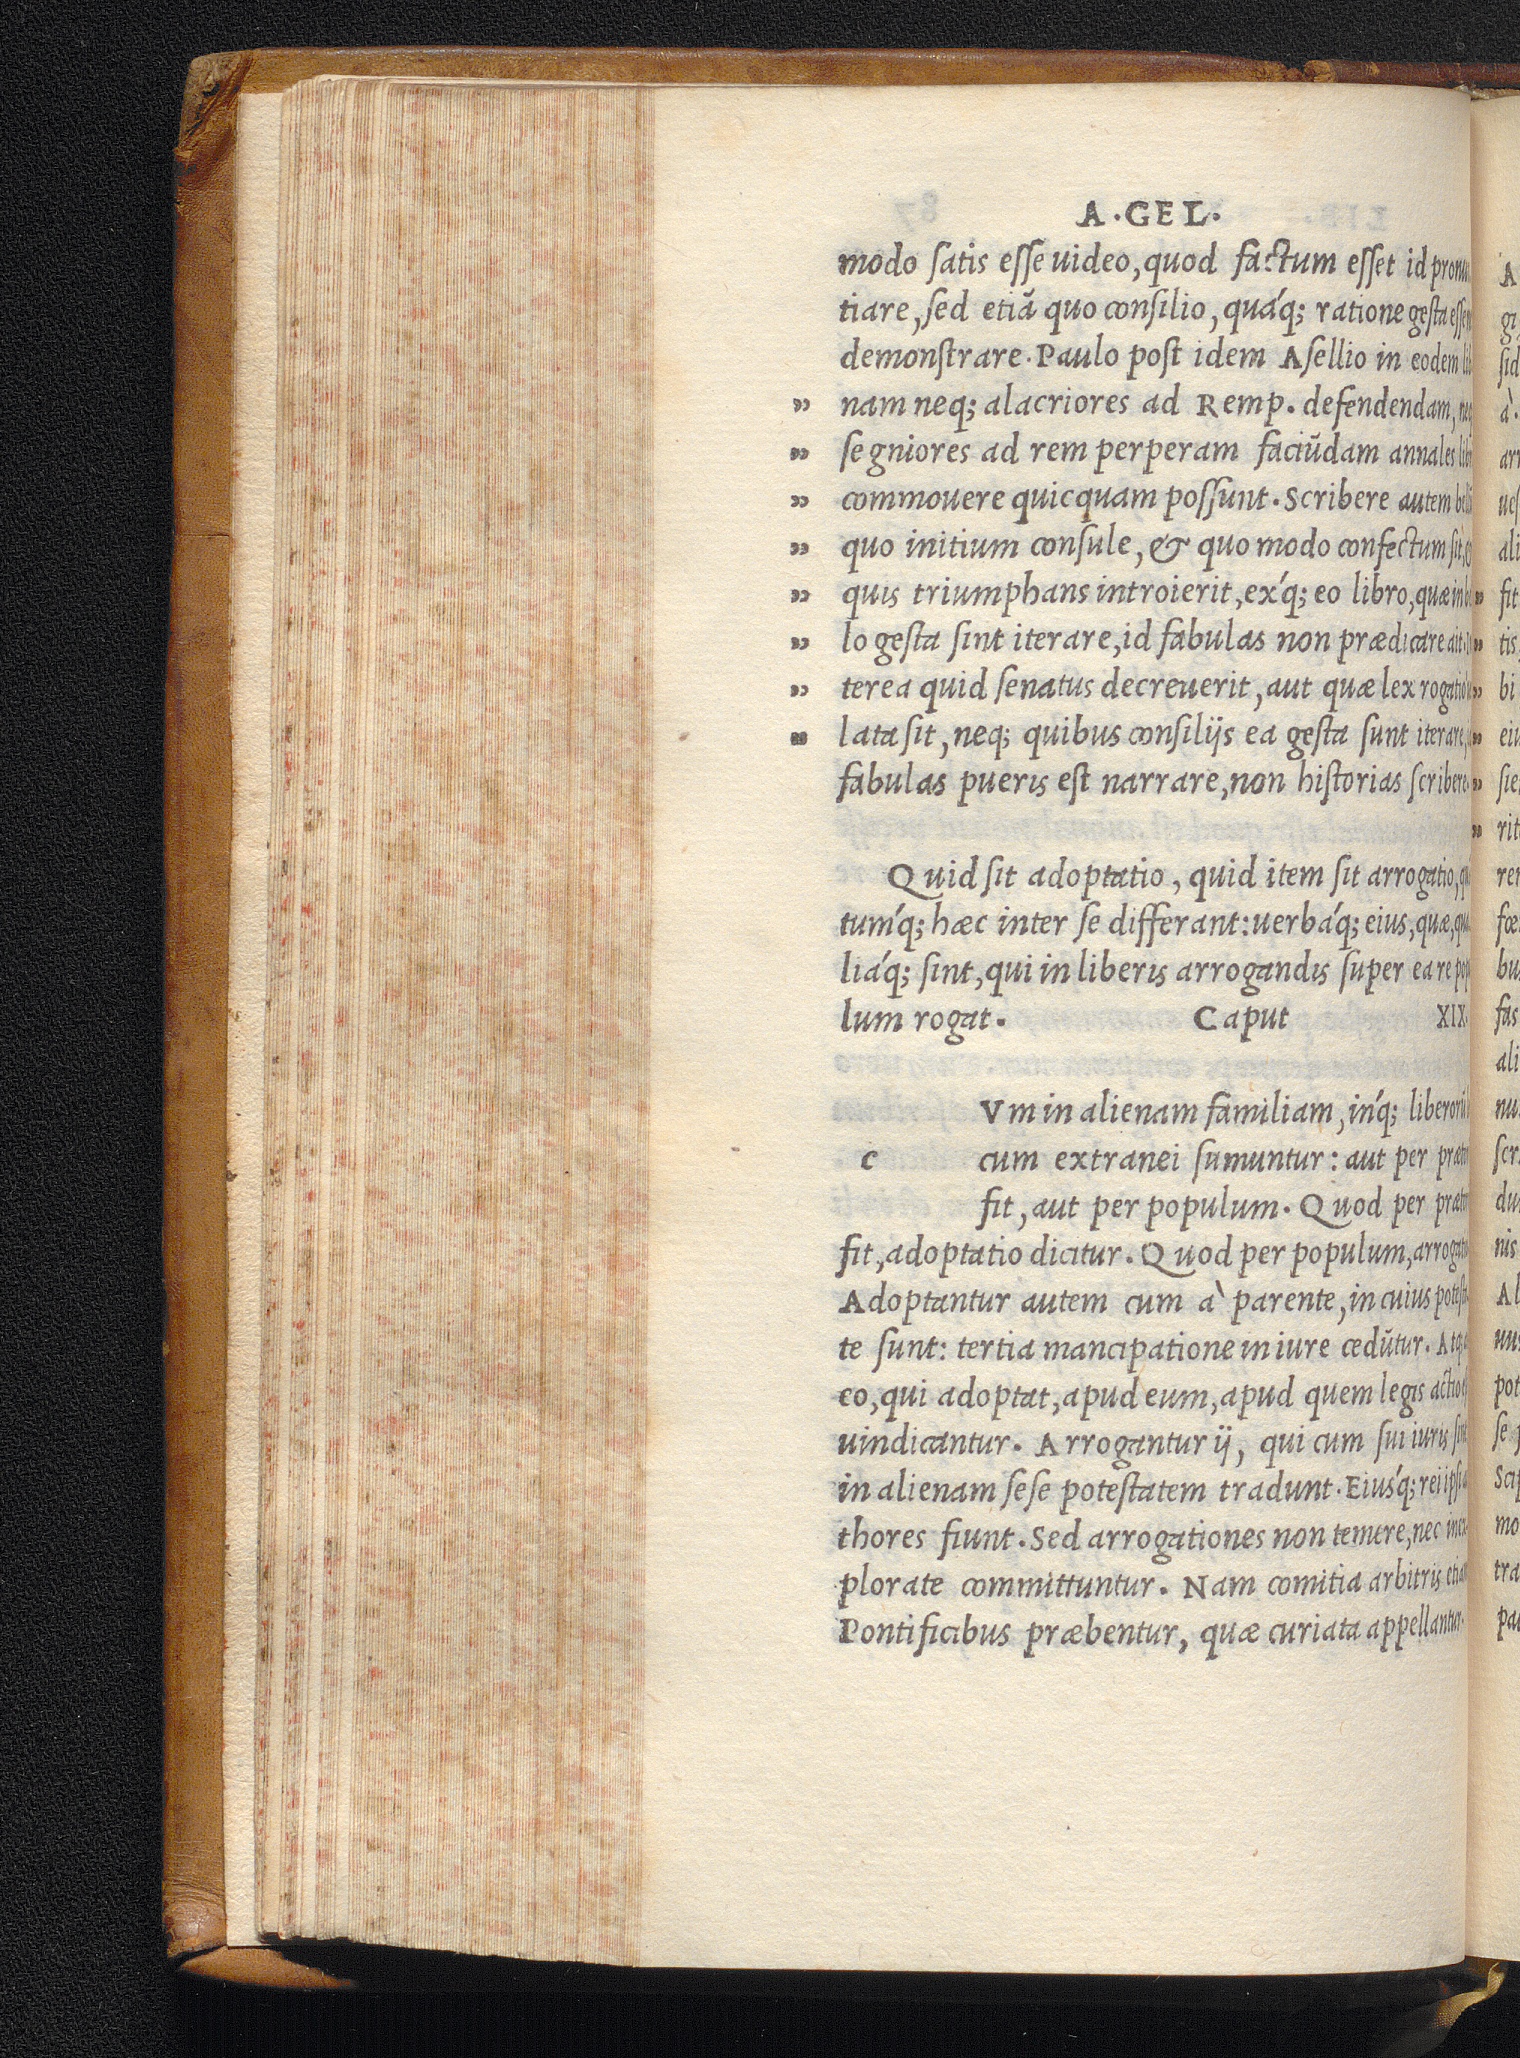 A·GEL·
modo ſatis eſſe uideo, quod factum eſſet id
tiare, ſed etiã quo conſilio, quáq; ratione geſta
demonſtrare. Paulo poſt idem Aſellio in eodem
” nam neq; alacriores ad Remp. defendendam,
” ſegniores ad rem perperam faciũdam annales
” commouere quicquam poſſunt. Scribere autem
” quo initium conſule, & quo modo confectum ſit,
” quis triumphans introierit, exq́; eo libro, quæ in
” lo geſta ſint iterare, id fabulas non prædicare ait.
” terea quid ſenatus decreuerit, aut quæ lex
” lata ſit, neq; quibus conſilijs ea geſta ſunt iterare,
fabulas pueris eſt narrare, non hiſtorias ſcribere.
Quid ſit adoptatio, quid item ſit arrogatio,
tumq́; hæc inter ſe differant: uerbáq; eius, quæ,
liáq; ſint, qui in liberis arrogandis ſuper ea re
lum rogat. Caput XIX.
Vm in alienam familiam, inq́;
c cum extranei ſumuntur: aut per
fit, aut per populum. Quod per
fit, adoptatio dicitur. Quod per populum,
Adoptantur autem cum à parente, in cuius
te ſunt: tertia mancipatione in iure cedũtur.
eo, qui adoptat, apud eum, apud quem legis
uindicantur. Arrogantur ij, qui cum ſui iuris
in alienam ſeſe poteſtatem tradunt. Eiusq́; rei
thores fiunt. Sed arrogationes non temere, nec
plorate committuntur. Nam comitia arbitris
Pontificibus præbentur, quæ curiata appellantur.